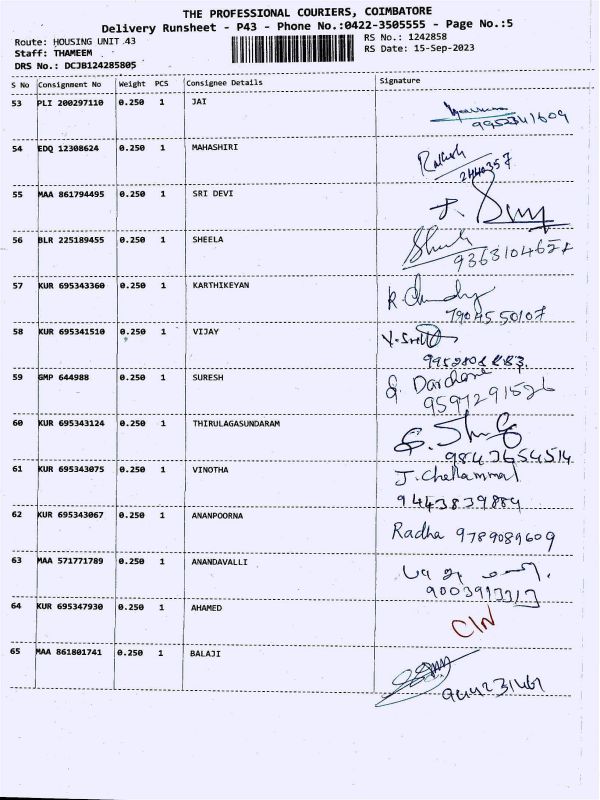 THE PROFESSIONAL COURIERS, COIMBATORE
Delivery Runsheet - P43 - Phone No.:0422-3505555 - Page No.:5
Route: HOUSING UNIT 43
RS No.: 1242858
Staff: THAMEEM
RS Date: 15-Sep-2023
DRS No.: DCJB124285805
S No Consignment No Weight PCS Consignee Details Signature
53 PLI 200297110 0.250 1 JAI
54 EDQ 12308624 0.250 1 MAHASHIRI
Rakesh
2440357
55 MAA 861794495 0.250 1 SRI DEVI
56 BLR 225189455 0.250 1 SHEELA
57 KUR 695343360 0.250 1 KARTHIKEYAN
7904550107
58 KUR 695341510 0.250 1 VIJAY
59 GMP 644988 0.250 1 SURESH
9597291526
60 KUR 695343124 0.250 1 THIRULAGASUNDARAM
9843654514
61 KUR 695343075 0.250 1 VINOTHA
J. Chellammal
9443839884
62 KUR 695343067 0.250 1 ANANPOORNA
Radha 9789089609
63 MAA 571771789 0.250 1 ANANDAVALLI
64 KUR 695347930 0.250 1 AHAMED
CIN
65 MAA 861801741 0.250 1 BALAJI